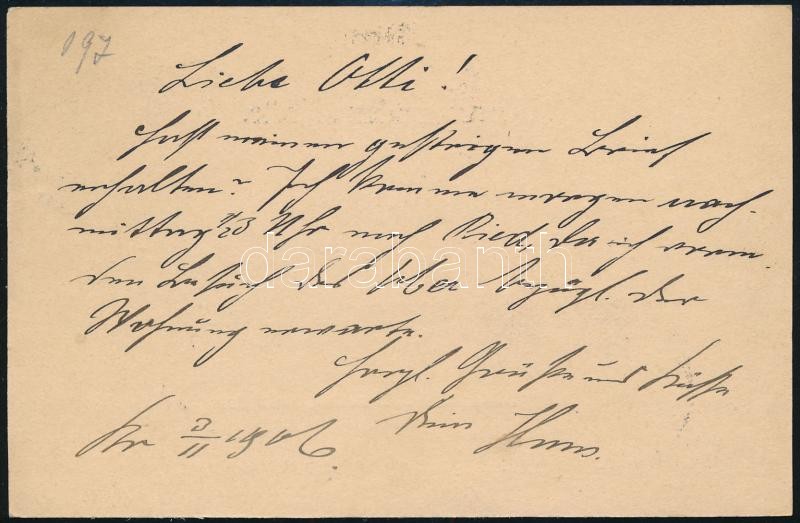 197
Liebe Otti!
Hast meinen gestrigen Brief
erhalten? Ich komme morgen nach-
mittag 1/23 Uhr nach Ried, da ich
den Besuch des bezügl. der
Wohnung erwarte.
Herzl. Grüße und Küsse
Dein Hans.
3/11 1906.
darabanth